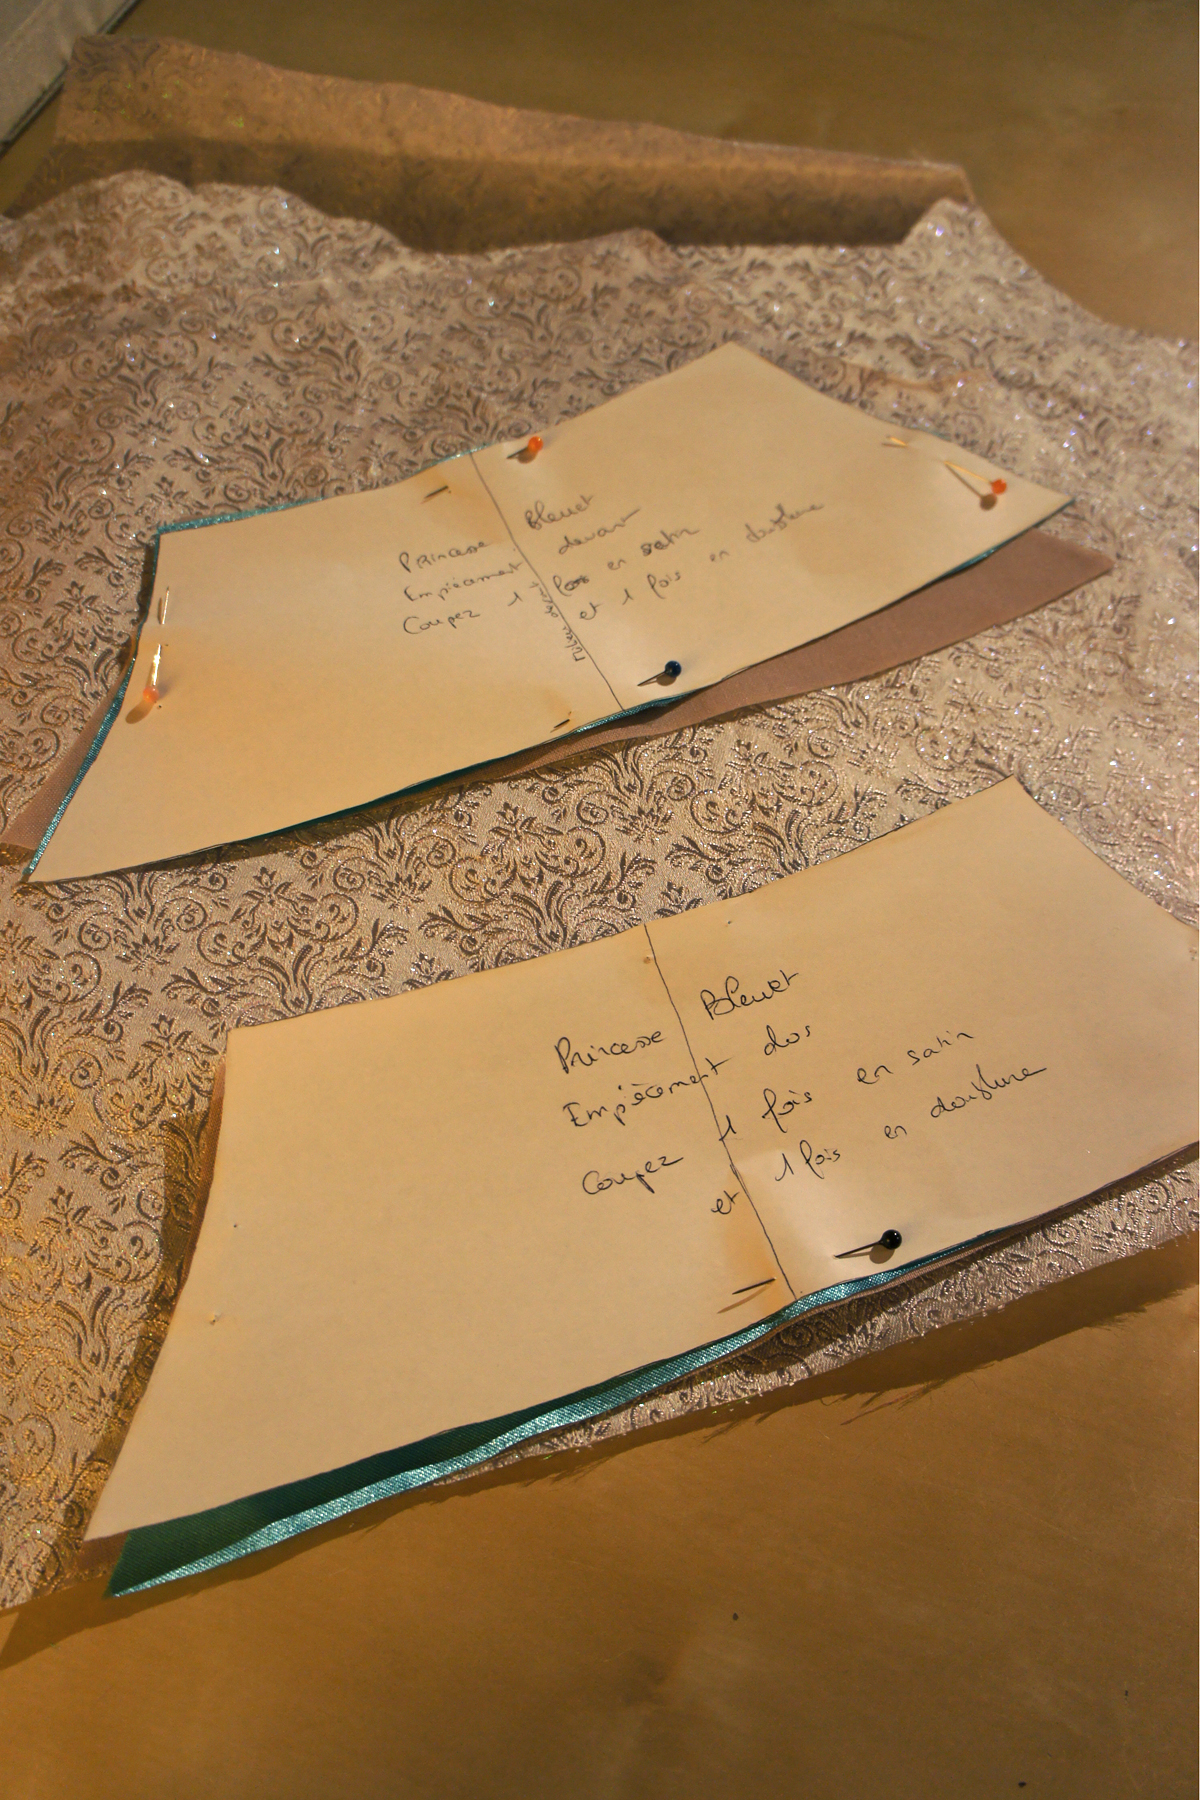 Princesse Bleuet
Empiècement devant
Coupez 1 fois en satin
et 1 fois en doublure
Milieu
Princesse Bleuet
Empiècement dos
Coupez 1 fois en satin
et 1 fois en doublure